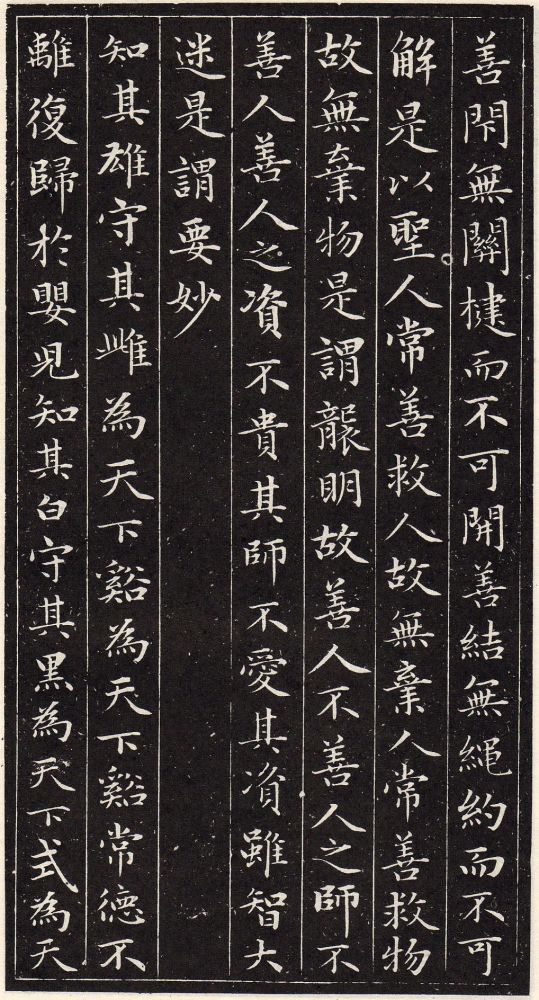 善閇無關楗而不可開善結無繩約而不可
解是以聖人常善救人故無棄人常善救物
故無棄物是謂襲明故善人不善人之師不
善人善人之資不貴其師不愛其資雖智大
迷是謂要妙
知其雄守其雌為天下谿為天下谿常德不
離復歸於嬰兒知其白守其黑為天下式為天